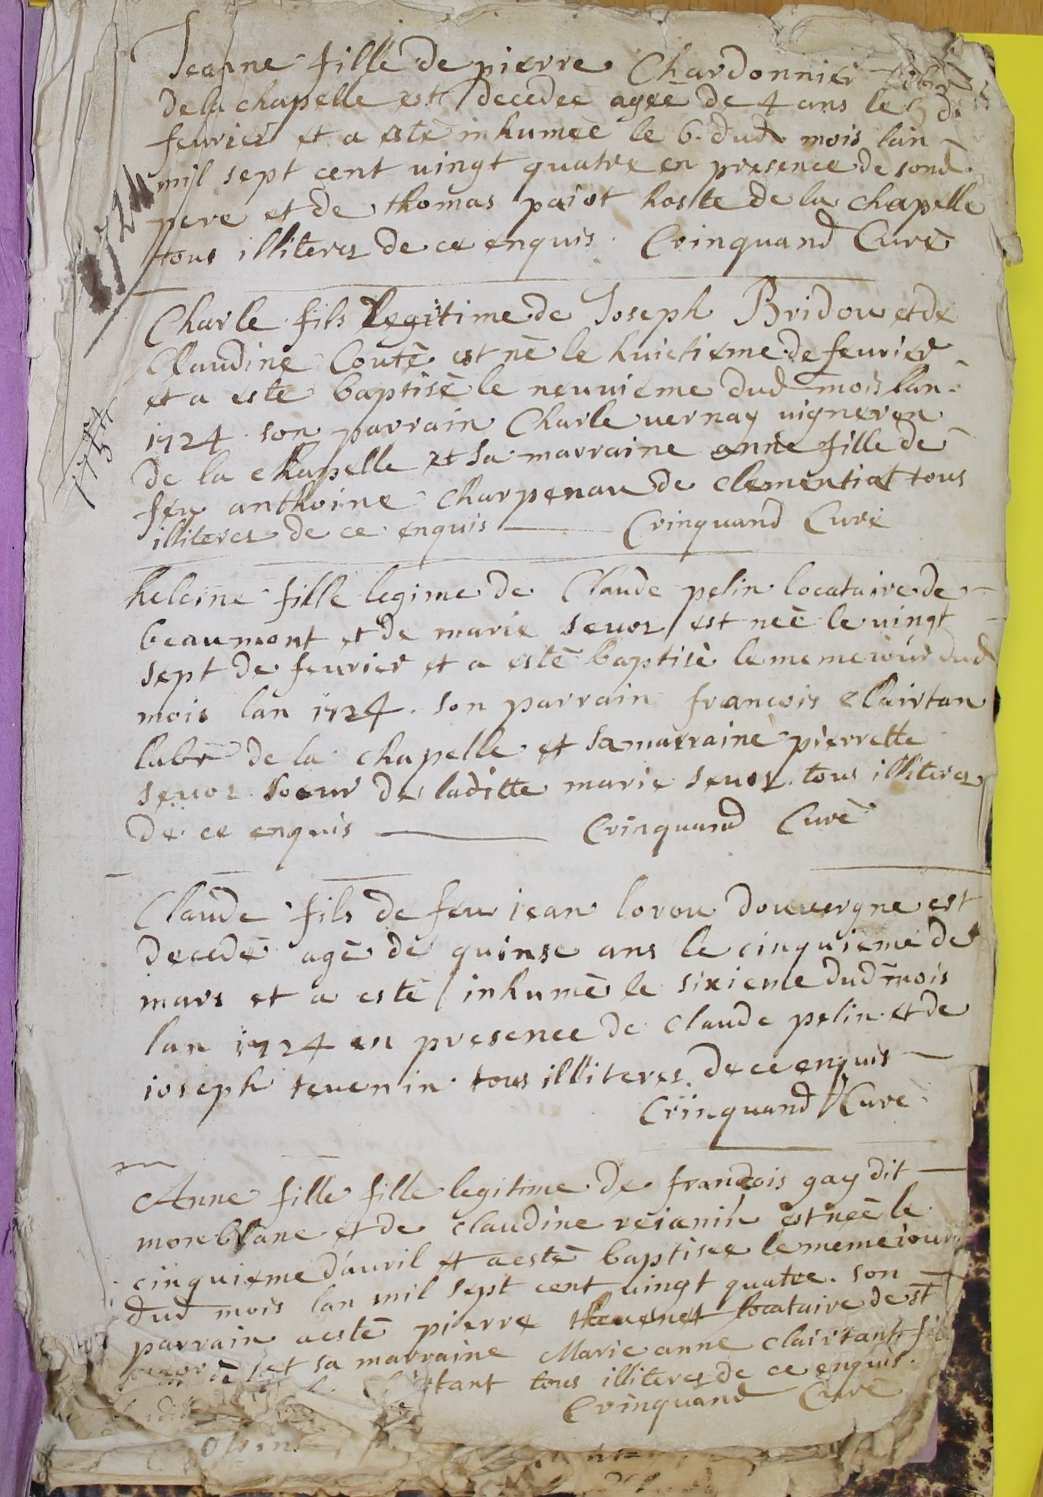 Jeanne fille de pierre Chardonnier
de la chapelle est decedee agée de 4 ans le 5 de
feurier et a esté inhumeé le 6. dud mois lan
mil sept cent uingt quatre en presence de sond
pere et de thomas paiot hoste de la chapelle
tous illiteres de ce enquis. Crinquand Curé
1724
Charle fils legitime de Joseph Bridou et de
Claudine Couté est né le huictieme de feurier
et a este baptisé le neuuieme dud mois lan
1724 son parrain Charle uernay uigneron
de la chapelle et sa marraine anne fille de
feu anthoine charpenau de clementiat tous
illiteres de ce enquis Crinquand Curé
1724
heleine fille legime de Claude pelin locataire de
beaumont et de marie seuoz est neé le uingt
sept de feurier et a esté baptisé le meme iour dud
mois lan 1724. son parrain françois Clairtan
labr de la chapelle et sa marraine pierrette
seuoz soeur de laditte marie seuoz tous illiteres
de ce enquis Crinquand Curé
Claude fils de feu iean lorou douuergne est
decedé agé de quinse ans le cinquieme de
mars et a esté inhumé le sixieme dud mois
lan 1724 en presence de claude pelin et de
ioseph teuenin tous illiteres de ce enquis
Crinquand Curé
Anne fille fille legitime de françois gay dit
monblanc et de claudine reianin est neé le
cinquieme dauril et a esté baptisee le meme iour
dud mois lan mil sept cent uingt quatre. son
parrain a esté pierre theuenet locataire de st
et sa marraine Marie anne clairtant
tous illiteres de ce enquis.
Crinquand Curé